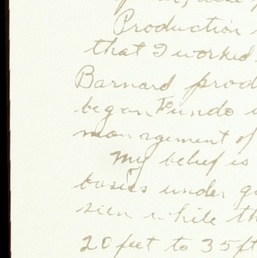 Production
that I worked
Barnard prod
began Fundo
management of
My belief is
basics under
seen while th
20 feet to 35 ft